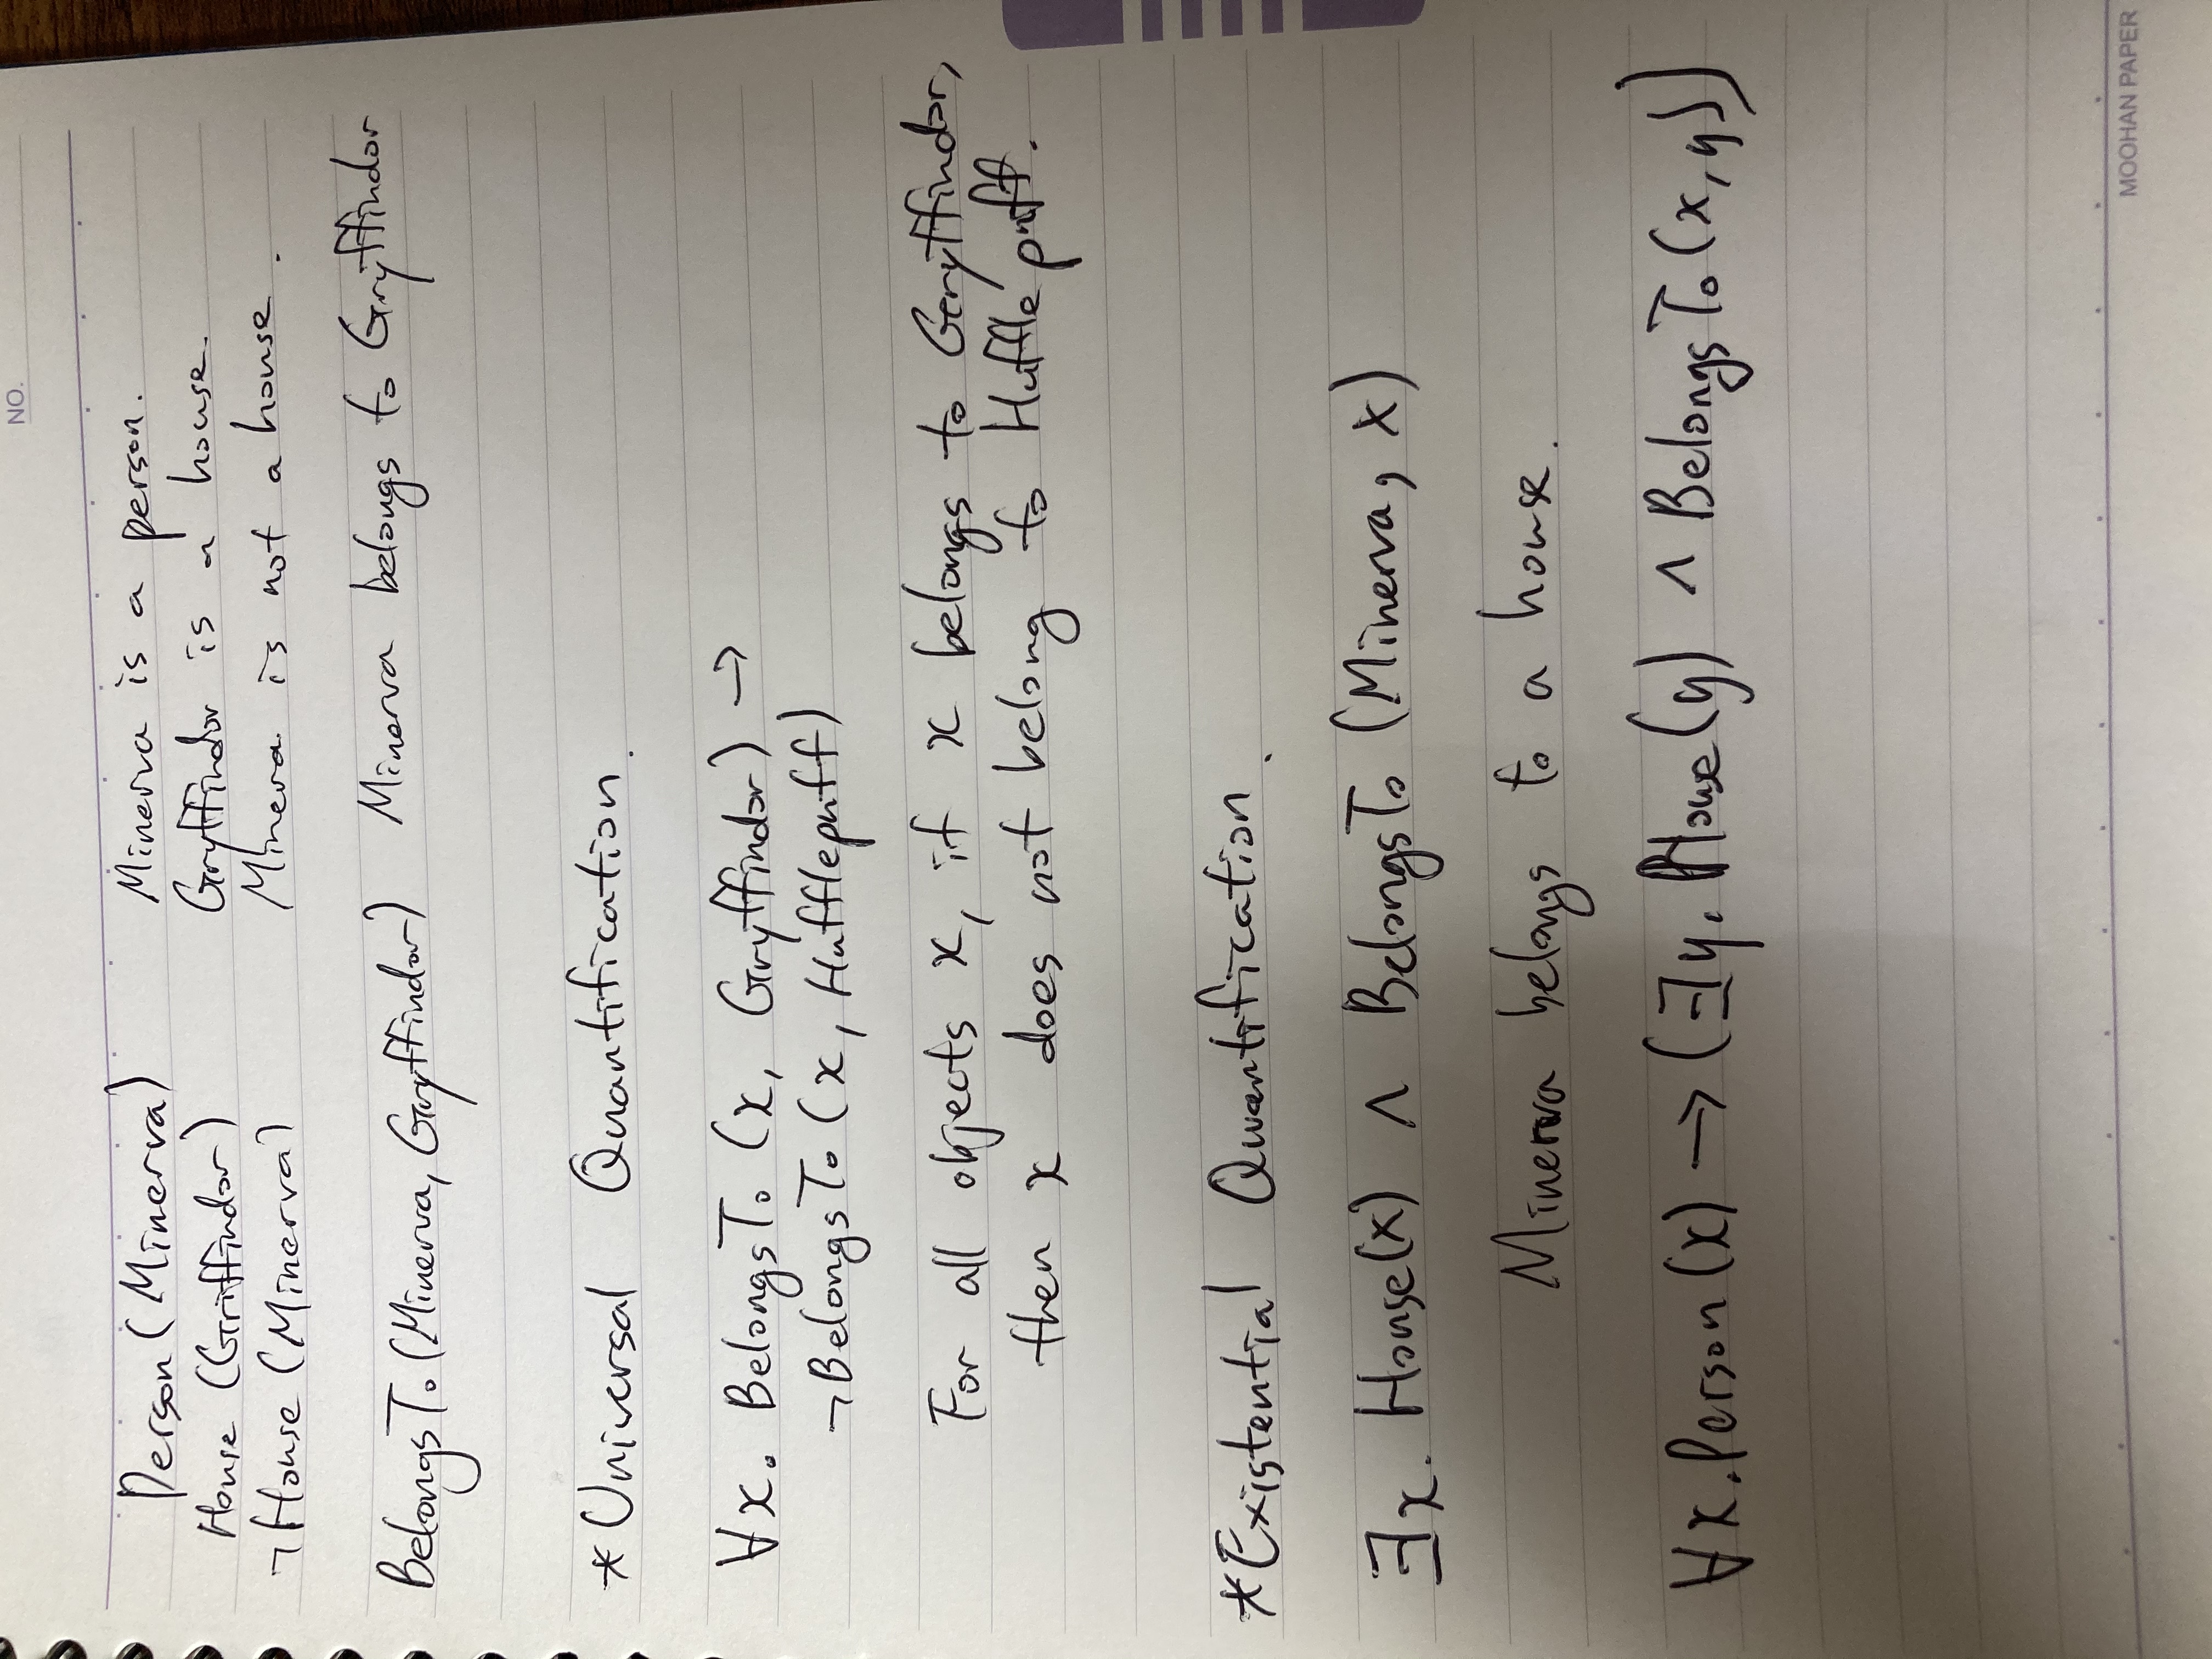 NO.
Person (Minerva) Minerva is a person.
House (Griffindor) Gryffindor is a house.
¬House (Minerva) Minerva is not a house.
BelongsTo (Minerva, Gryffindor) Minerva belongs to Gryffindor
*Universal Quantification.
∀x. BelongsTo (x, Gryffindor) →
¬BelongsTo (x, Hufflepuff)
For all objects x, if x belongs to Gryffindor,
then x does not belong to Hufflepuff.
*Existential Quantification.
∃x. House(x) ∧ BelongsTo (Minerva, x)
Minerva belongs to a house.
∀x. Person(x) → (∃y. House(y) ∧ BelongsTo(x, y))
MOOHAN PAPER